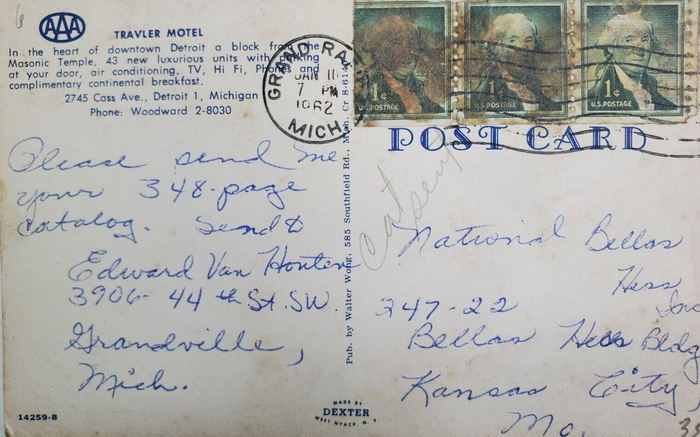 6
AAA
TRAVLER MOTEL
In the heart of downtown Detroit a block from the
Masonic Temple, 43 new luxurious units with parking
at your door, air conditioning, TV, Hi Fi, Phones and
complimentary continental breakfast.
2745 Cass Ave., Detroit 1, Michigan
Phone: Woodward 2-8030
GRAND RA
JAN 10
7 PM
1962
MICH.
1¢
U.S. POSTAGE
1¢
U.S. POSTAGE
1¢
U.S. POSTAGE
POST CARD
Please send me
your 348-page
catalog. Send to
Edward Van Houten
3906-44th St. S.W.
Grandville,
Mich.
Pub. by Walter Wong, 585 Southfield Rd., Mich. Cr 8-614
National Bellas
Hess
Inc
247-22
Bellas Hess Bldg
Kansas City
Mo.
14259-B
MADE BY
DEXTER
WEST NYACK, N. Y.